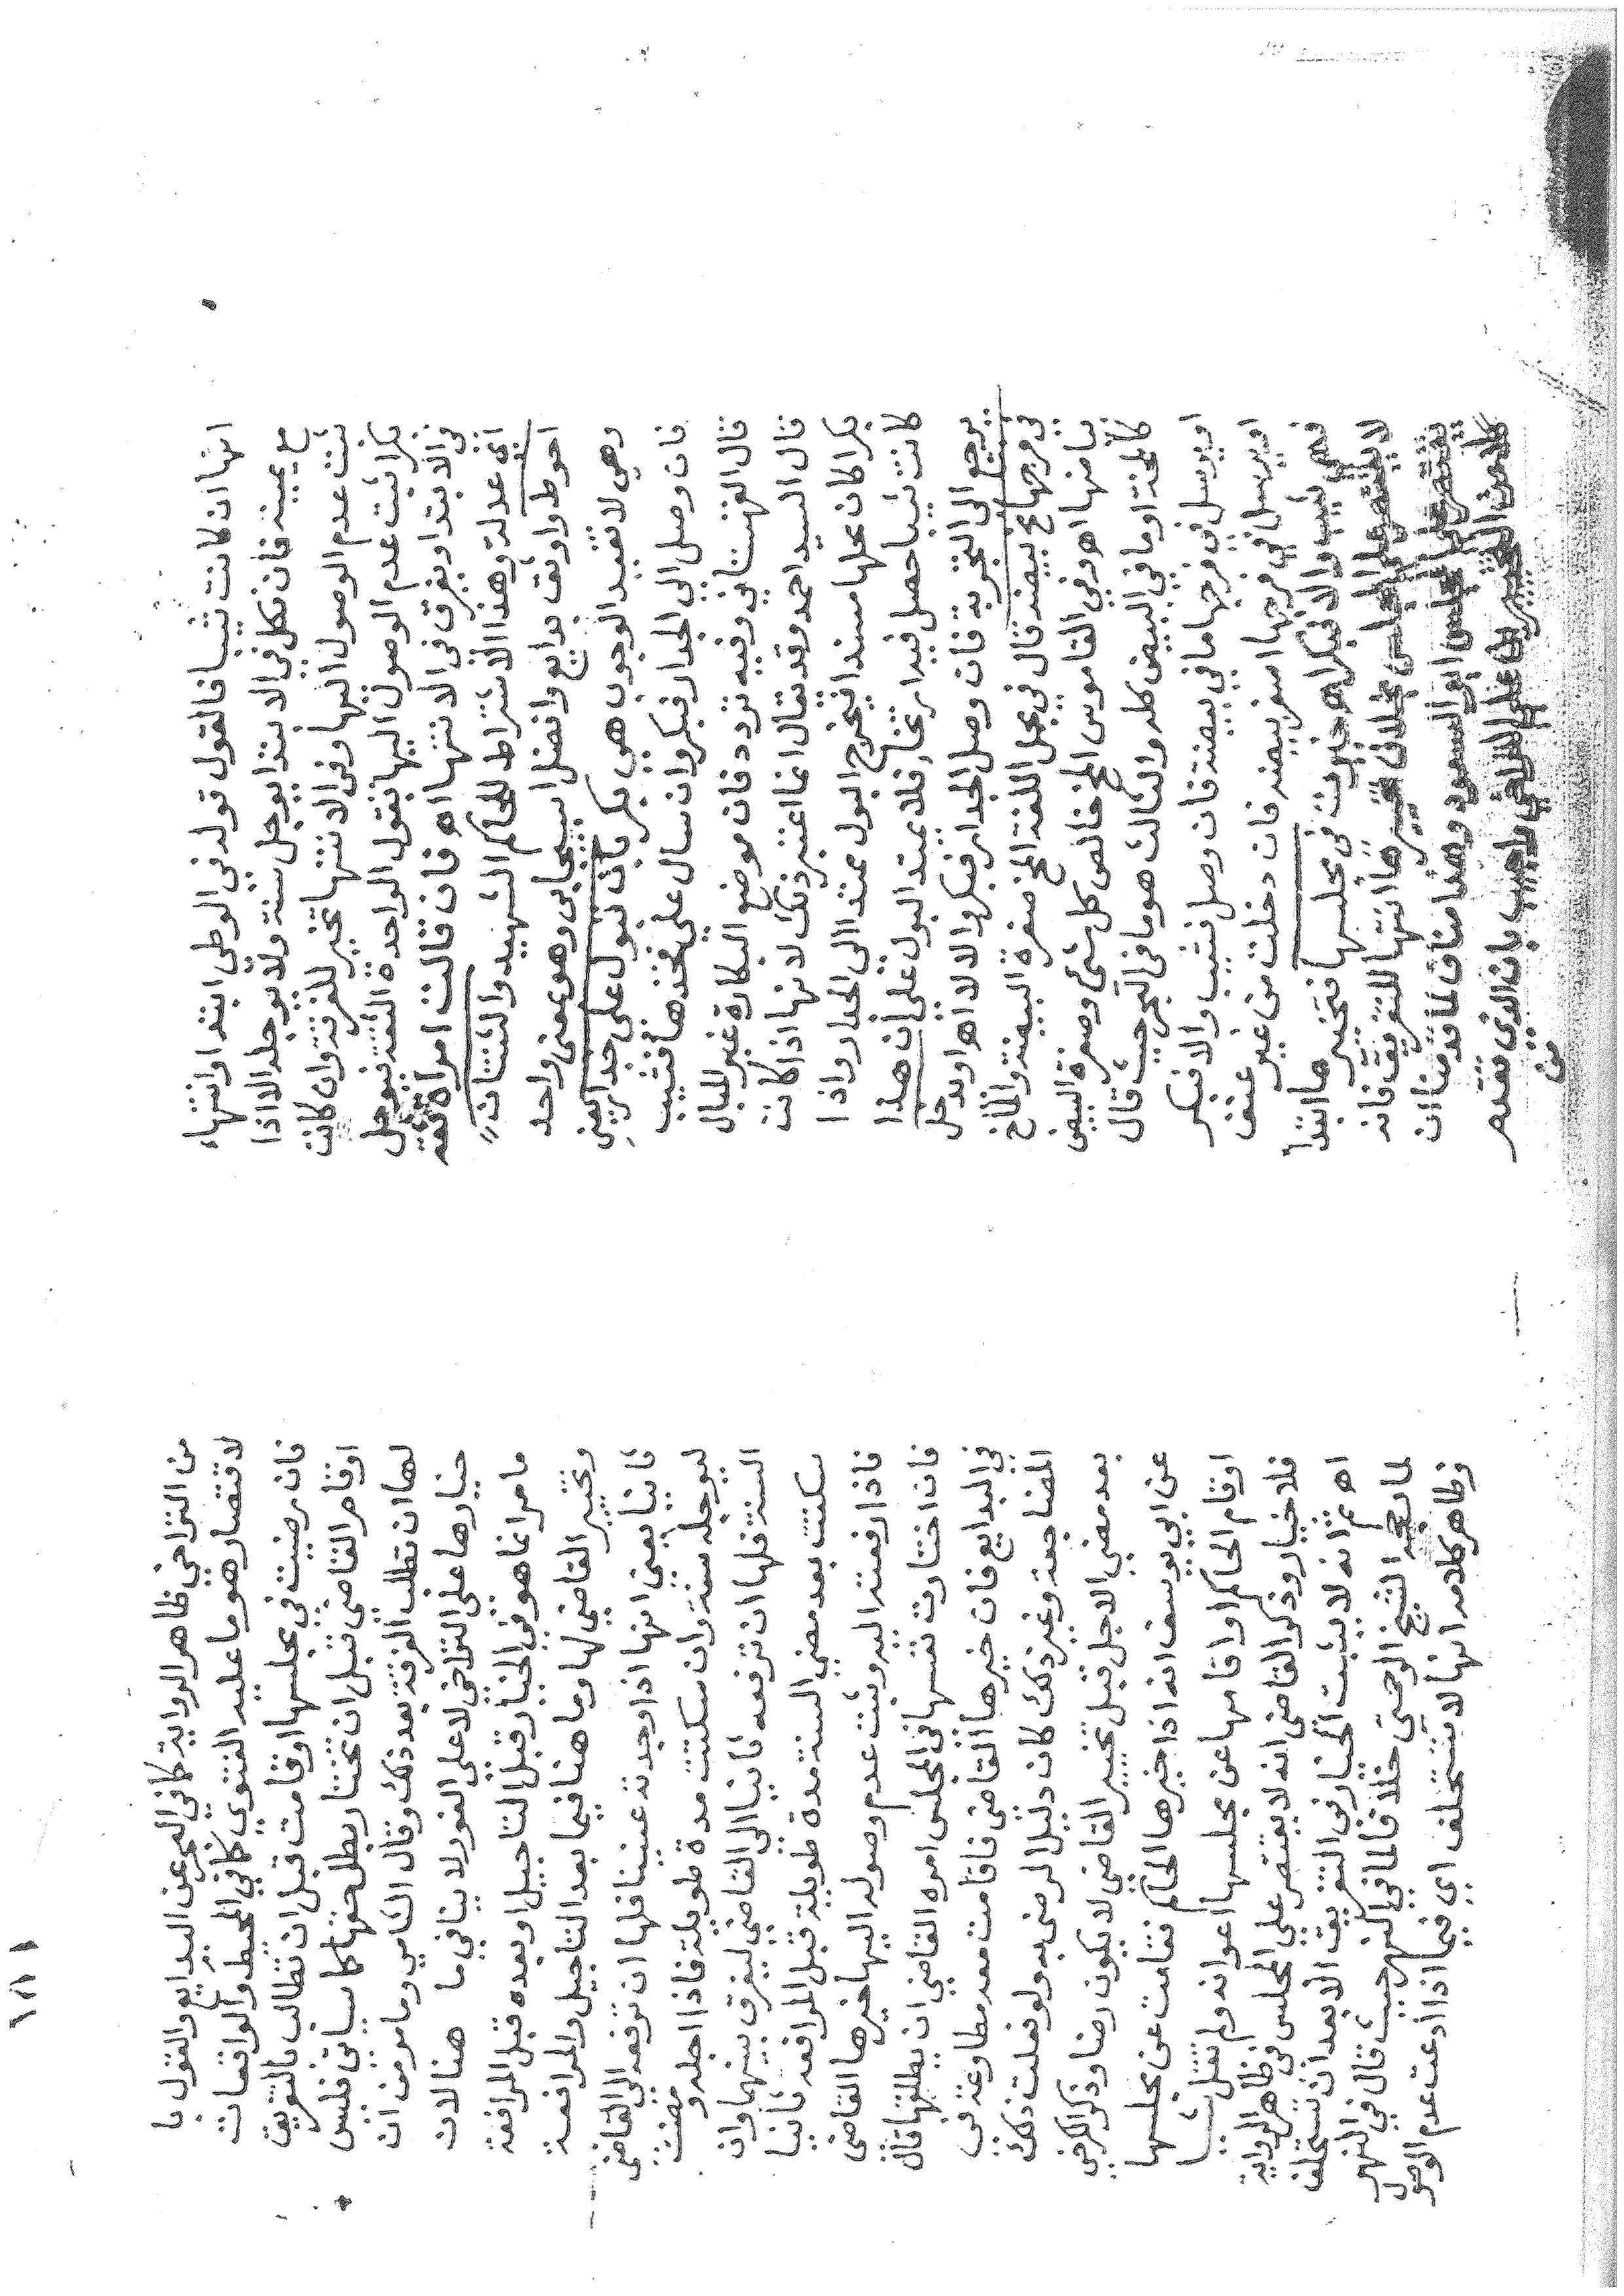 انها ان كانت ثيبا فالقول قوله في الوطئ ابتدا وانتهاء
مع يمينه فان نكل في الابتدا يوجل سنة ولا يوجله الا اذا
ثبت عدم الوصول اليها وفي الانتها تخير للفرقة وان كانت
بكرا ثبت عدم الوصول اليها بقول الواحدة الثقة فيوجل
في الابتدا ويفرق في الانتها اه فان قالت امراة ثقة
اي عدلة وهذا الاشتراط للحاكم الشهيد والثنتان
احوط واوثق بدايع وافضل اسبيجابي وهو بمعنى واحد
وهي لا تفيد الوجوب هي بكر بان تبول على جدار يعني
فان وصل الي الجدار فبكر وان سال علي فخذها فثيب
قال القهستاني وفيه تردد فان موضع البكارة غير المبال
قال السيد احمد وقد يقال انما اعتبر ذلك لانها اذا كانت
بكرا كان محلها مسندا فيخرج البول ممتدا الي الجدار واذا
كانت ثيبا حصل فيه ارتخاء فلا يمتد البول علي ان هذا
يرجع الي التجربة فان وصل الجدار فبكر والا لا اه او يدخل
في فرجها مح بيضة قال في مجمل اللغة المح صفرة البيضة والماح
بياضها اه وفي القاموس المح خالص كل شئ وصفرة البيض
كالمحة او ما في البيض كله والثالث هو ما في البحر حيث قال
او يرسل في فرجها ما في بيضة فان وصل فثيب والا فبكر
او يرسل في فرجها اصغر بيضة فان دخلت من غير عنف
فهي ثيب والا فبكر اه خيرت في مجلسها فتخييرها ابتدا
لا يقتصر علي المجلس بخلاف تخييرها انتها للتفريق فانه
يقتصر علي المجلس ابو السعود وهذا مناف لما قدمنا ان
كلا من التخييرين علي التراخي واجيب بان الذي تقدم
من
١٨١
من التراخي ظاهر الرواية كما في البحر عن البدايع والقول با
لاقتصار هو ما عليه الفتوي كما في المحيط والواقعات
فان رضيت في مجلسها او قامت قبل ان تطالب بالتفريق
او قام القاضي قبل ان تختار بطل حقها كما سياتي فليس
لها ان تطلب الفرقة بعد ذلك وقال الشامي وما مر من ان
خيارها علي التراخي لا علي الفور لا ينافي ما هنا لان
ما مر انما هو في الخيار قبل التاجيل او بعده قبل المرافعة
وتخيير القاضي لها وما هنا فيما بعد التاجيل والمرافعة
ثانيا يعني انها اذا وجدته عنينا فلها ان ترفعه الي القاضي
ليوجله سنة وان سكتت مدة طويلة فاذا اجله ومضت
السنة فلها ان ترفعه ثانيا الي القاضي ليفرق بينهما وان
سكتت بعد مضي السنة مدة طويلة قبل المرافعة ثانيا
فاذا رفعته اليه وثبت عدم وصوله اليها خيرها القاضي
فان اختارت نفسها في المجلس امره القاضي ان يطلقها قال
في البدايع فان خيرها القاضي فاقامت معه مطاوعة في
المضاجعة وغير ذلك كان دليل الرضي به ولو فعلت ذلك
بعد مضي الاجل قبل تخيير القاضي لا يكون رضا وذكر الكرخي
عن ابي يوسف انه اذا خيرها الحاكم فقامت عن مجلسها
او قام الحاكم او اقامها عن مجلسها اعوانه ولم تقل شيا
فلا خيار وذكر القاضي انه لا يقتصر علي المجلس في ظاهر الرواية
اه ثم انه لا يثبت الخيار في التفريق الا بعد ان تستحلف
لما رجحه الشيخ الرحمتي خلافا لما في النهر حيث قال في النهر
وظاهر كلامه انها لا تستحلف اي فيما اذا ادعت عدم الوصول